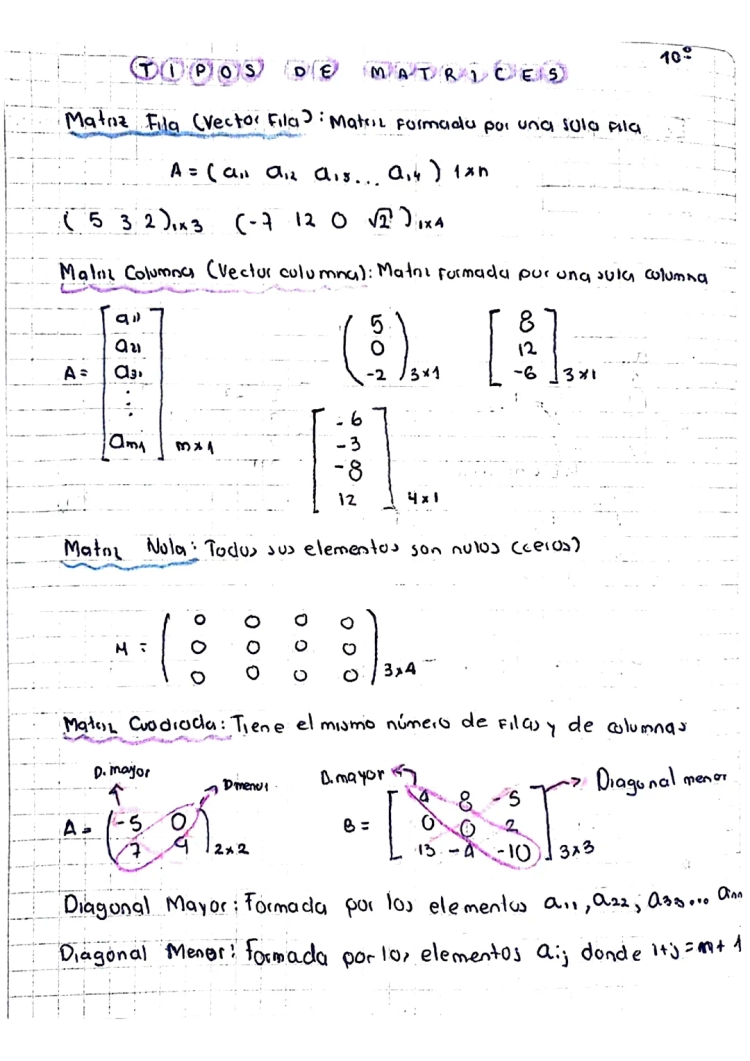 10º
TIPOS DE MATRICES
Matriz Fila (Vector Fila): Matriz Formada por una sola Fila
A = ( a₁₁ a₁₂ a₁₃... a₁₄ ) 1xn
( 5 3 2)₁ₓ₃ (-7 12 0 √2)₁ₓ₄
Matriz Columna (Vector columna): Matriz Formada por una sola columna
A = [ a₁₁ a₂₁ a₃₁ ⋮ aₘ₁ ] m x 1
( 5 0 -2 ) 3x1
[ 8 12 -6 ] 3x1
[ -6 -3 -8 12 ] 4x1
Matriz Nula: Todos sus elementos son nulos (ceros)
M = ( 0 0 0 0
0 0 0 0
0 0 0 0 ) 3x4
Matriz Cuadrada: Tiene el mismo número de Filas y de columnas
D. mayor
D menor
A = ( -5 0
7 9 ) 2x2
D. mayor
Diagonal menor
B = [ 4 8 -5
0 0 2
13 -4 -10 ] 3x3
Diagonal Mayor: Formada por los elementos a₁₁, a₂₂, a₃₃... aₙₙ
Diagonal Menor: Formada por los elementos aᵢⱼ donde i+j = m+1